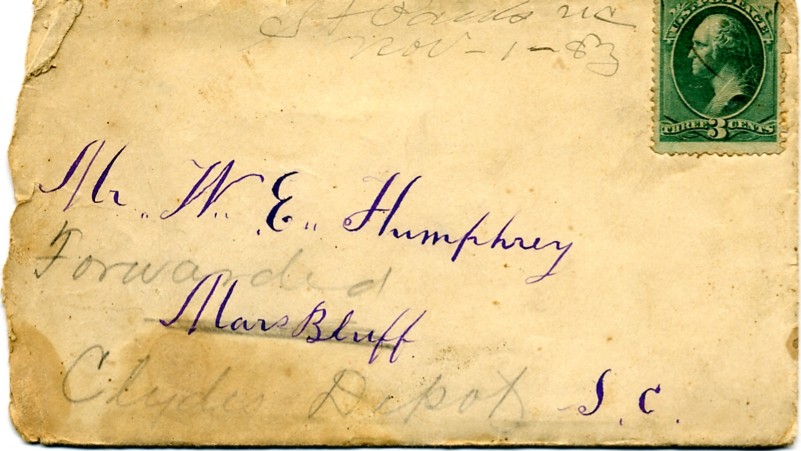 St Pauls NC
Nov-1-83
THREE 3 CENTS
Mr. W. E. Humphrey
Forwarded
Mars Bluff
Clydes Depot
S. C.